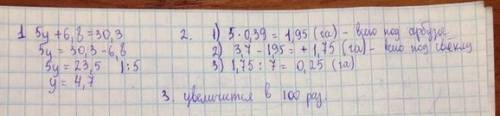 1. 5y + 6,8 = 30,3
5y = 30,3 - 6,8
5y = 23,5 | : 5
y = 4,7
2. 1) 5 · 0,39 = 1,95 (га) - всего под арбузы
2) 3,7 - 195 = + 1,75 (га) - всего под свеклу
3) 1,75 : 7 = 0,25 (га)
3. увеличится в 100 раз.